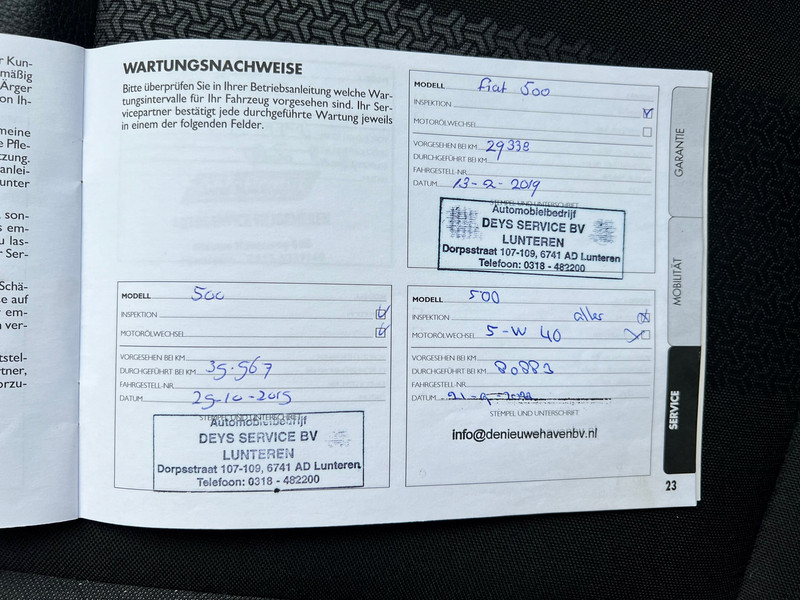 r Kun-
mäßig
Ärger
on Ih-
meine
e Pfle-
tzung.
anlei-
unter
, son-
s em-
u las-
r Ser-
Schä-
se auf
r em-
n ver-
tstel-
rtner,
orzu-
WARTUNGSNACHWEISE
Bitte überprüfen Sie in Ihrer Betriebsanleitung welche War-
tungsintervalle für Ihr Fahrzeug vorgesehen sind. Ihr Ser-
vicepartner bestätigt jede durchgeführte Wartung jeweils
in einem der folgenden Felder.
MODELL fiat 500
INSPEKTION
MOTORÖLWECHSEL
VORGESEHEN BEI KM 29338
DURCHGEFÜHRT BEI KM
FAHRGESTELL-NR.
DATUM 13-2-2019
STEMPEL UND UNTERSCHRIFT
Automobielbedrijf
DEYS SERVICE BV
LUNTEREN
Dorpsstraat 107-109, 6741 AD Lunteren
Telefoon: 0318 - 482200
MODELL 500
INSPEKTION
MOTORÖLWECHSEL
VORGESEHEN BEI KM
DURCHGEFÜHRT BEI KM 35.567
FAHRGESTELL-NR.
DATUM 29-10-2019
STEMPEL UND UNTERSCHRIFT
Automobielbedrijf
DEYS SERVICE BV
LUNTEREN
Dorpsstraat 107-109, 6741 AD Lunteren
Telefoon: 0318 - 482200
MODELL 500
INSPEKTION alles
MOTORÖLWECHSEL 5-W 40
VORGESEHEN BEI KM
DURCHGEFÜHRT BEI KM 80883
FAHRGESTELL-NR.
DATUM
STEMPEL UND UNTERSCHRIFT
info@denieuwehavenbv.nl
GARANTIE
MOBILITÄT
SERVICE
23